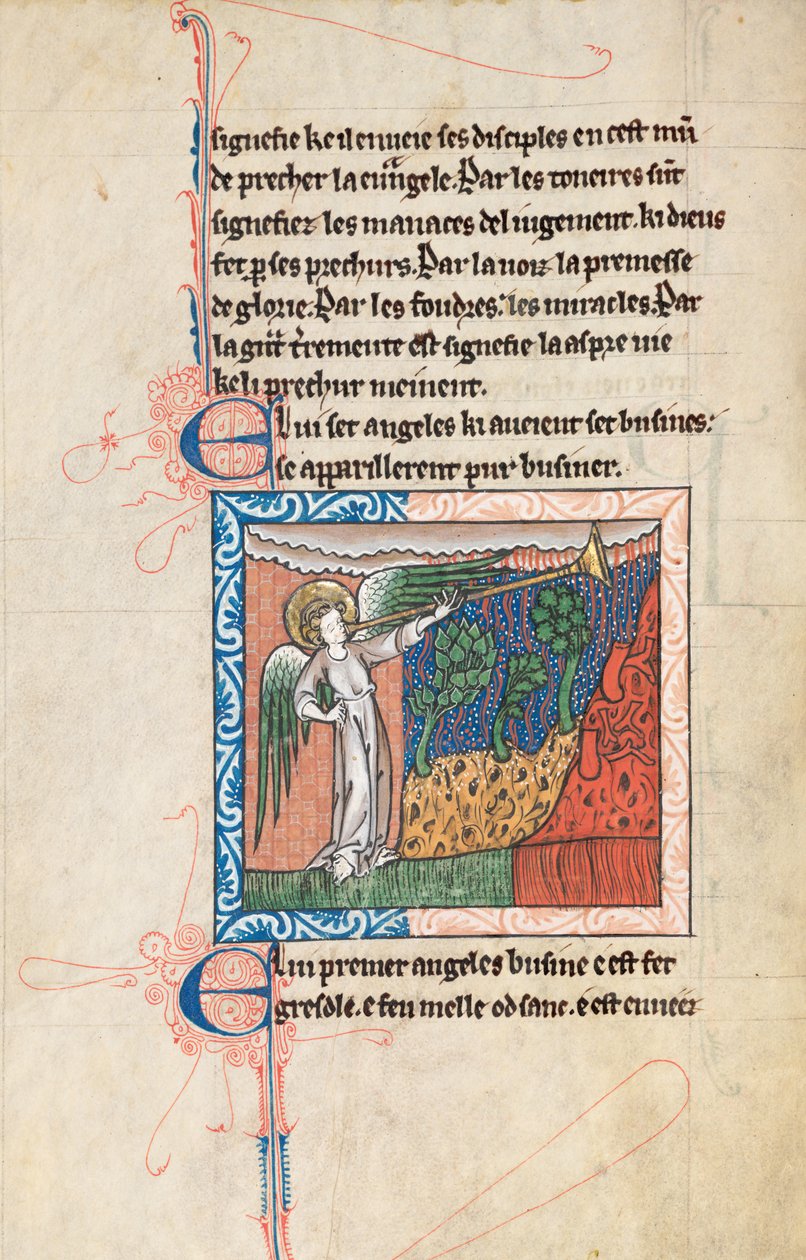 signefie ke il enueie ses disciples en cest mū
de precher la euuāgele. Par les toneires sūt
signefiez les manaces del iugement. ki dieus
fet ꝑ ses prechurs. Par la uoiz la premesse
de glorie. Par les foudres: les miracles. Par
la gͣnt tͬremente est signefie la aspre uie
ke li prechur meinent.
E lui set angeles ki aueient set busines:
se apparillerent pur businer.
E lui premer angeles busine e est fet
gresdle. e feu melle od sanc. e est enueez